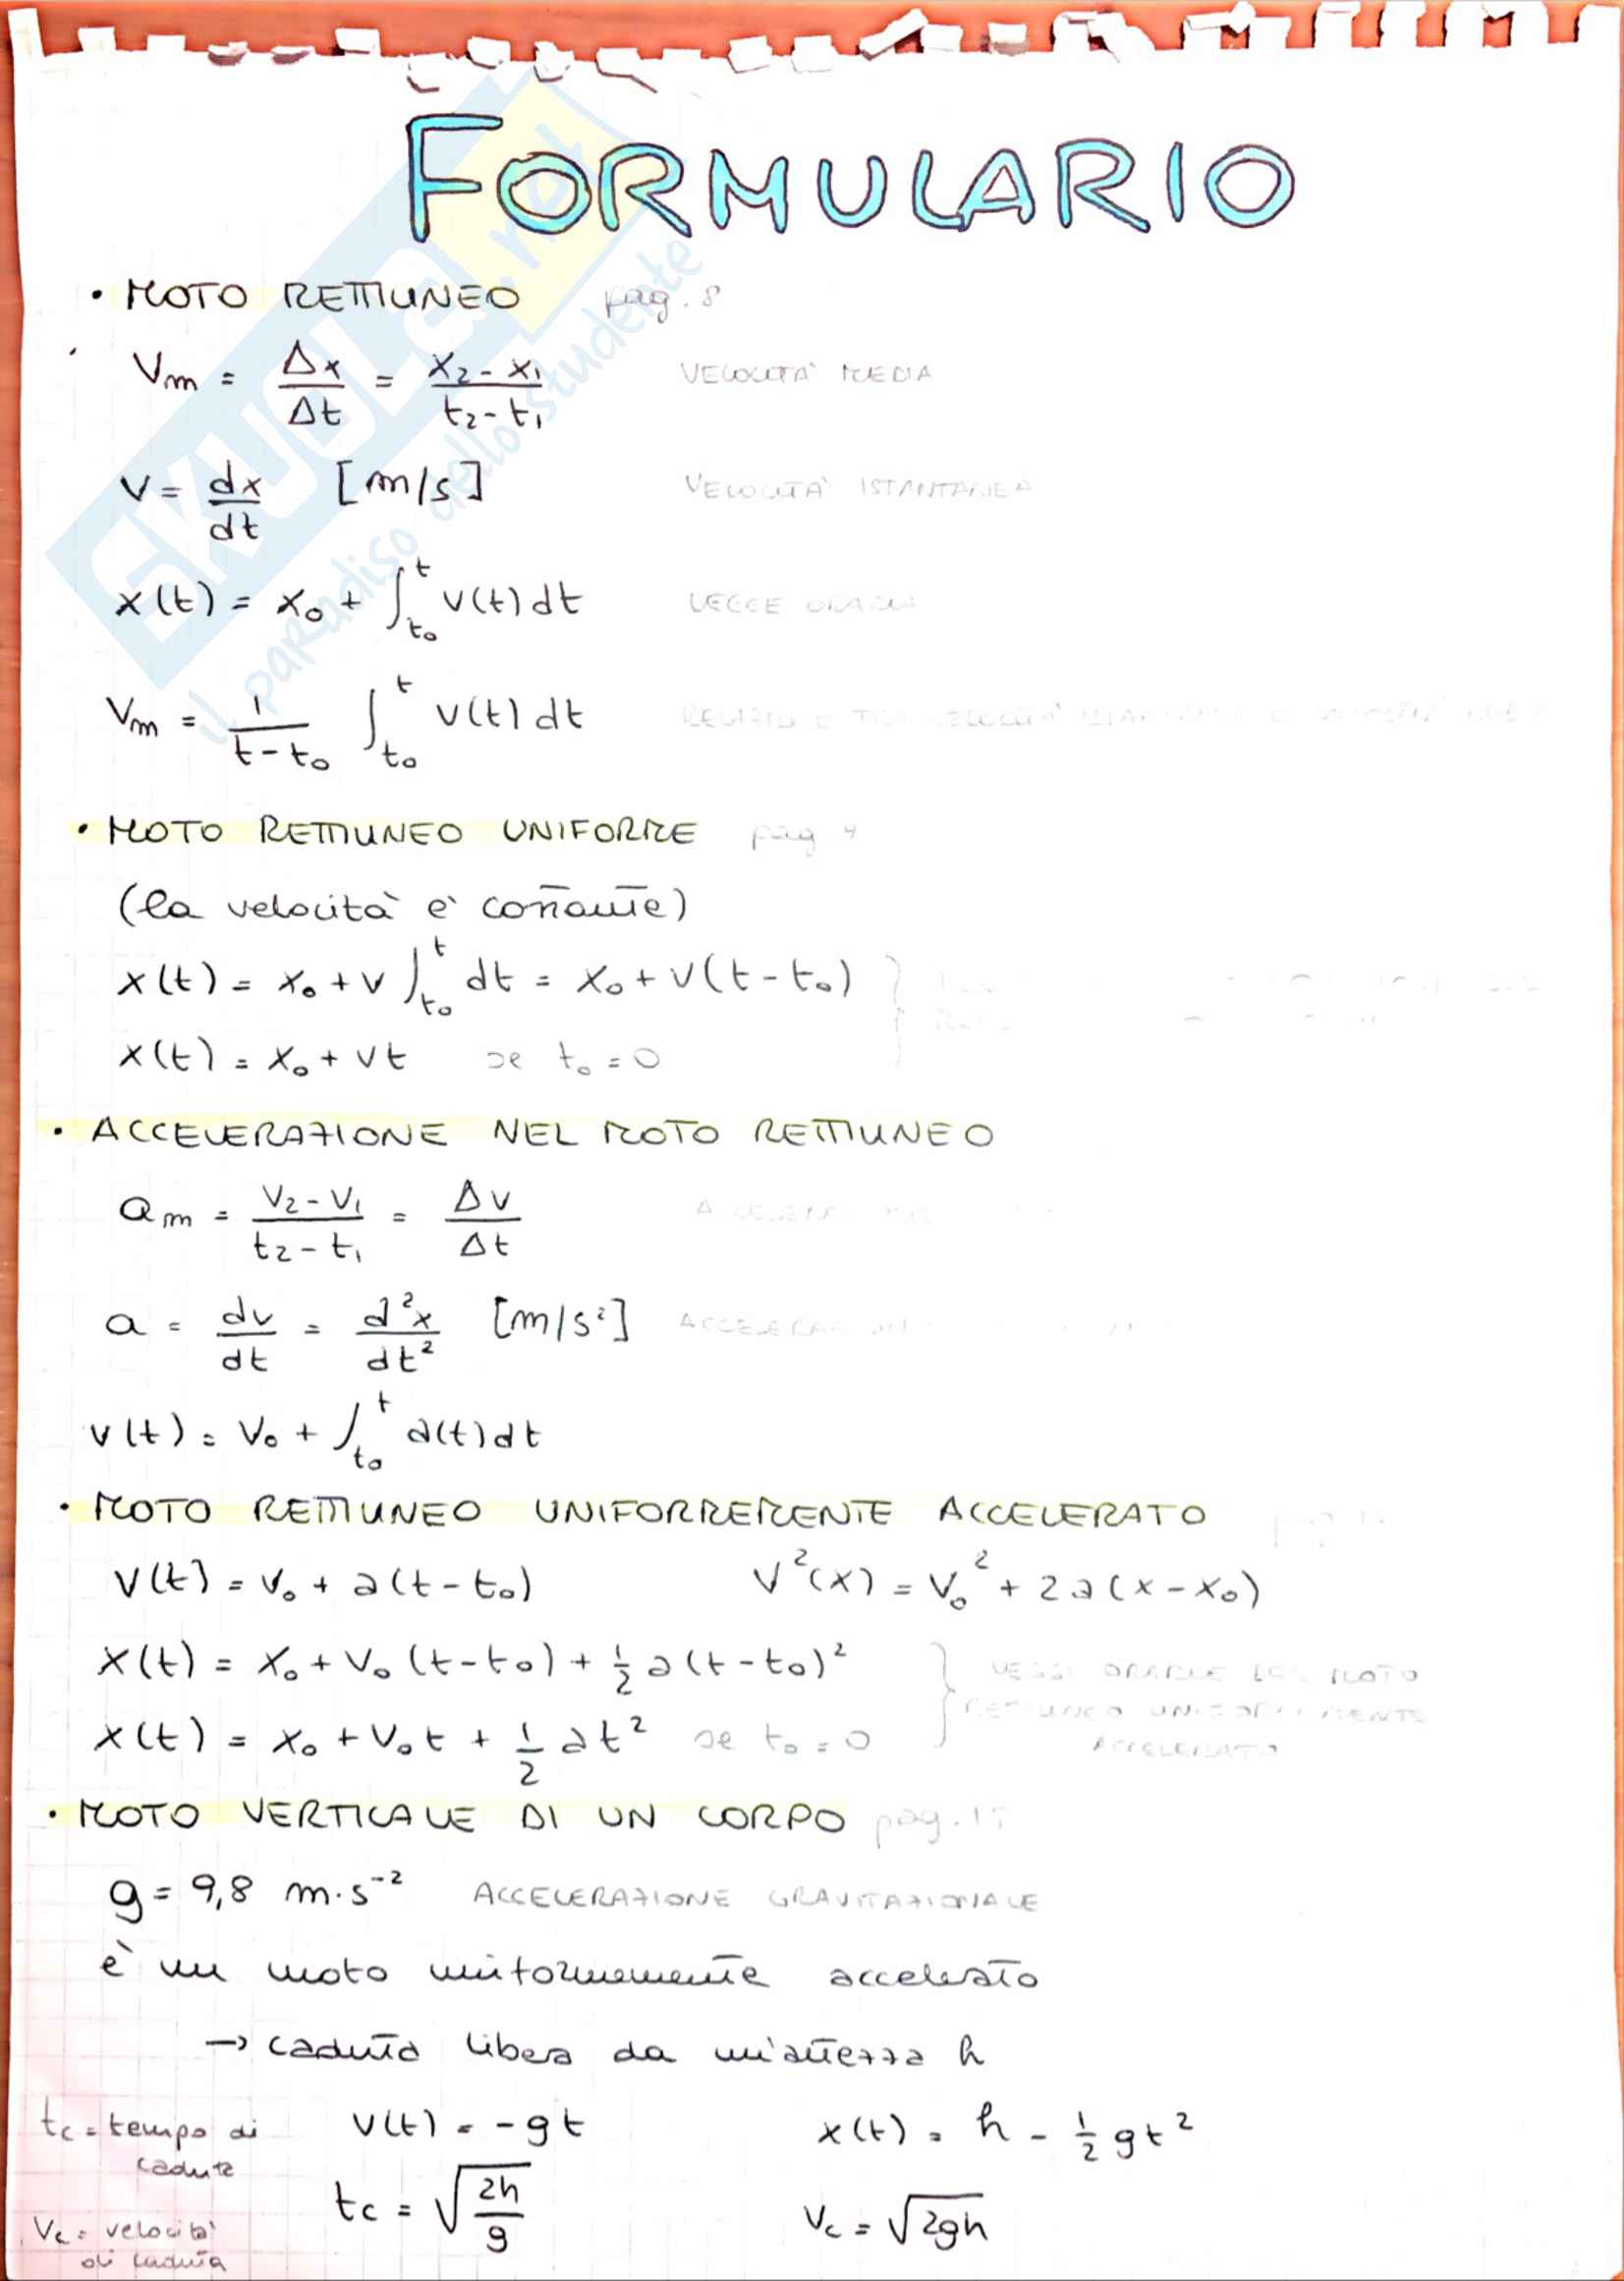 FORMULARIO
• MOTO RETTILINEO pag. 8
Vm = Δx/Δt = (x₂ - x₁)/(t₂ - t₁) VELOCITÀ MEDIA
V = dx/dt [m/s] VELOCITÀ ISTANTANEA
x(t) = x₀ + ∫_{t₀}^{t} v(t) dt LEGGE ORARIA
Vm = 1/(t - t₀) ∫_{t₀}^{t} v(t) dt RELAZIONE TRA VELOCITÀ ISTANTANEA E VELOCITÀ MEDIA
• MOTO RETTILINEO UNIFORME pag
(la velocità è costante)
x(t) = x₀ + v ∫_{t₀}^{t} dt = x₀ + v(t - t₀)
x(t) = x₀ + vt se t₀ = 0
• ACCELERAZIONE NEL MOTO RETTILINEO
am = (v₂ - v₁)/(t₂ - t₁) = Δv/Δt
a = dv/dt = d²x/dt² [m/s²]
v(t) = v₀ + ∫_{t₀}^{t} a(t) dt
• MOTO RETTILINEO UNIFORMEMENTE ACCELERATO
v(t) = v₀ + a(t - t₀) v²(x) = v₀² + 2a(x - x₀)
x(t) = x₀ + v₀(t - t₀) + ½ a(t - t₀)²
x(t) = x₀ + v₀t + ½ at² se t₀ = 0
LEGGI ORARIE DEL MOTO
RETTILINEO UNIFORMEMENTE
ACCELERATO
• MOTO VERTICALE DI UN CORPO pag.
g = 9,8 m·s⁻² ACCELERAZIONE GRAVITAZIONALE
è un moto uniformemente accelerato
→ caduta libera da un'altezza h
tc = tempo di
caduta
v(t) = -gt x(t) = h - ½ gt²
tc = √(2h/g) vc = √(2gh)
vc = velocità
di caduta
SKUOLA.net
il paradiso dello studente